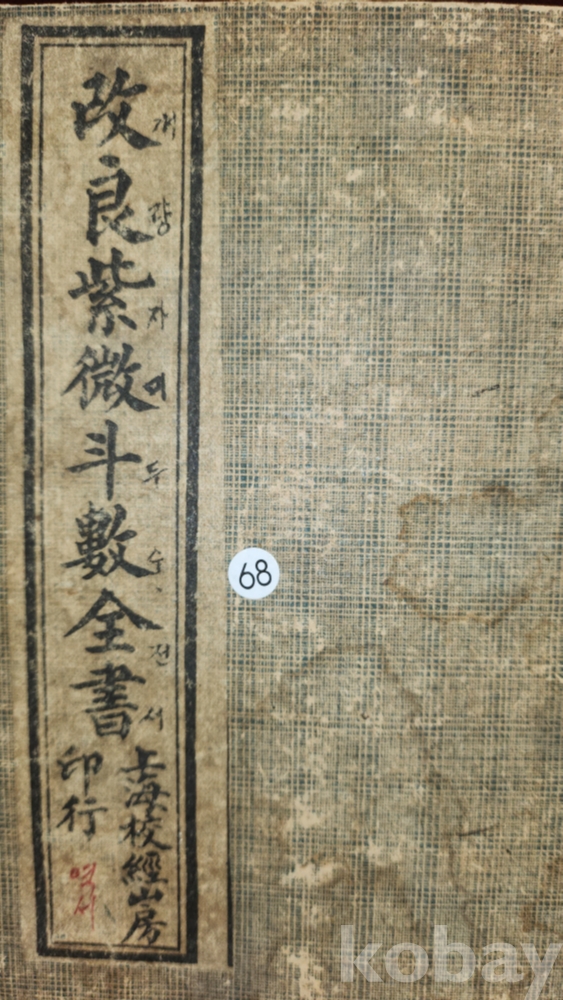 改良紫微斗數全書
개량자미두수전서
上海校經山房
印行
역서
68
kobay